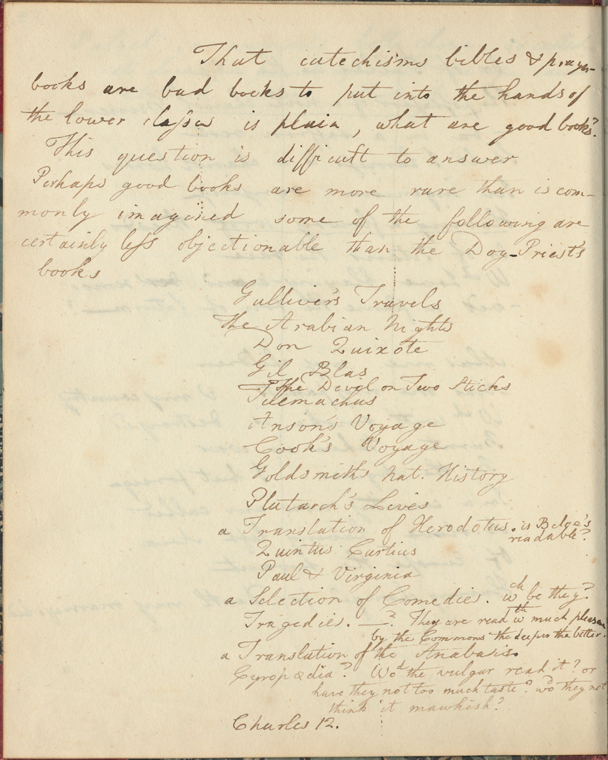 That catechisms bibles & prayer-
books are bad books to put into the hands of
the lower classes is plain, what are good books?
This question is difficult to answer
Perhaps good books are more rare than is com-
monly imagined some of the following are
certainly less objectionable than the Dog-Priest's
books
Gulliver's Travels
The Arabian Nights
Don Quixote
Gil Blas
The Devil on Two Sticks
Telemachus
Anson's Voyage
Cook's Voyage
Goldsmith's Nat. History
Plutarch's Lives
a Translation of Herodotus. is Beloe's
readable?
Quintus Curtius
Paul & Virginia
a Selection of Comedies. wch be they?
Tragedies. —? They are read wth much pleasure
by the Commons the deeper the better.
a Translation of the Anabasis.
Cyropædia? Wod the vulgar read it? or
have they not too much taste? wod they not
think it mawkish?
Charles 12.